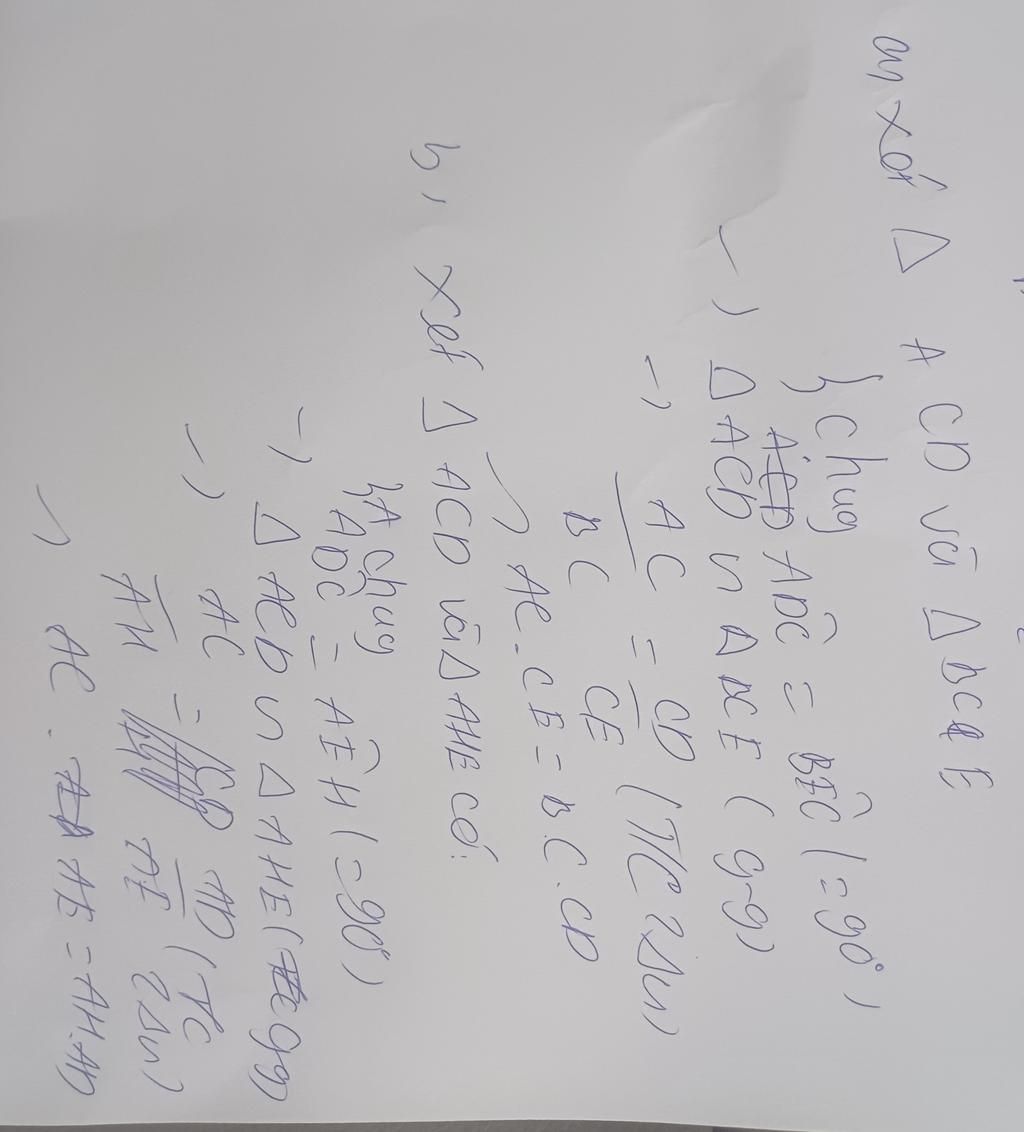 a, xét Δ ACD và Δ BCE
{ C chug
ADC^ = BEC^ (= 90°)
→) Δ ACD ∽ Δ BCE (g-g)
→) AC/BC = CD/CE (T/C 2Δ∽)
→ AC. CE = BC. CD
b, xét Δ ACD và Δ AHE có:
{ A chug
ADC^ = AEH^ (= 90°)
→) Δ ACD ∽ Δ AHE (gg)
→) AC/AH = AD/AE (TC 2Δ∽)
→ AC. AE = AH.AD